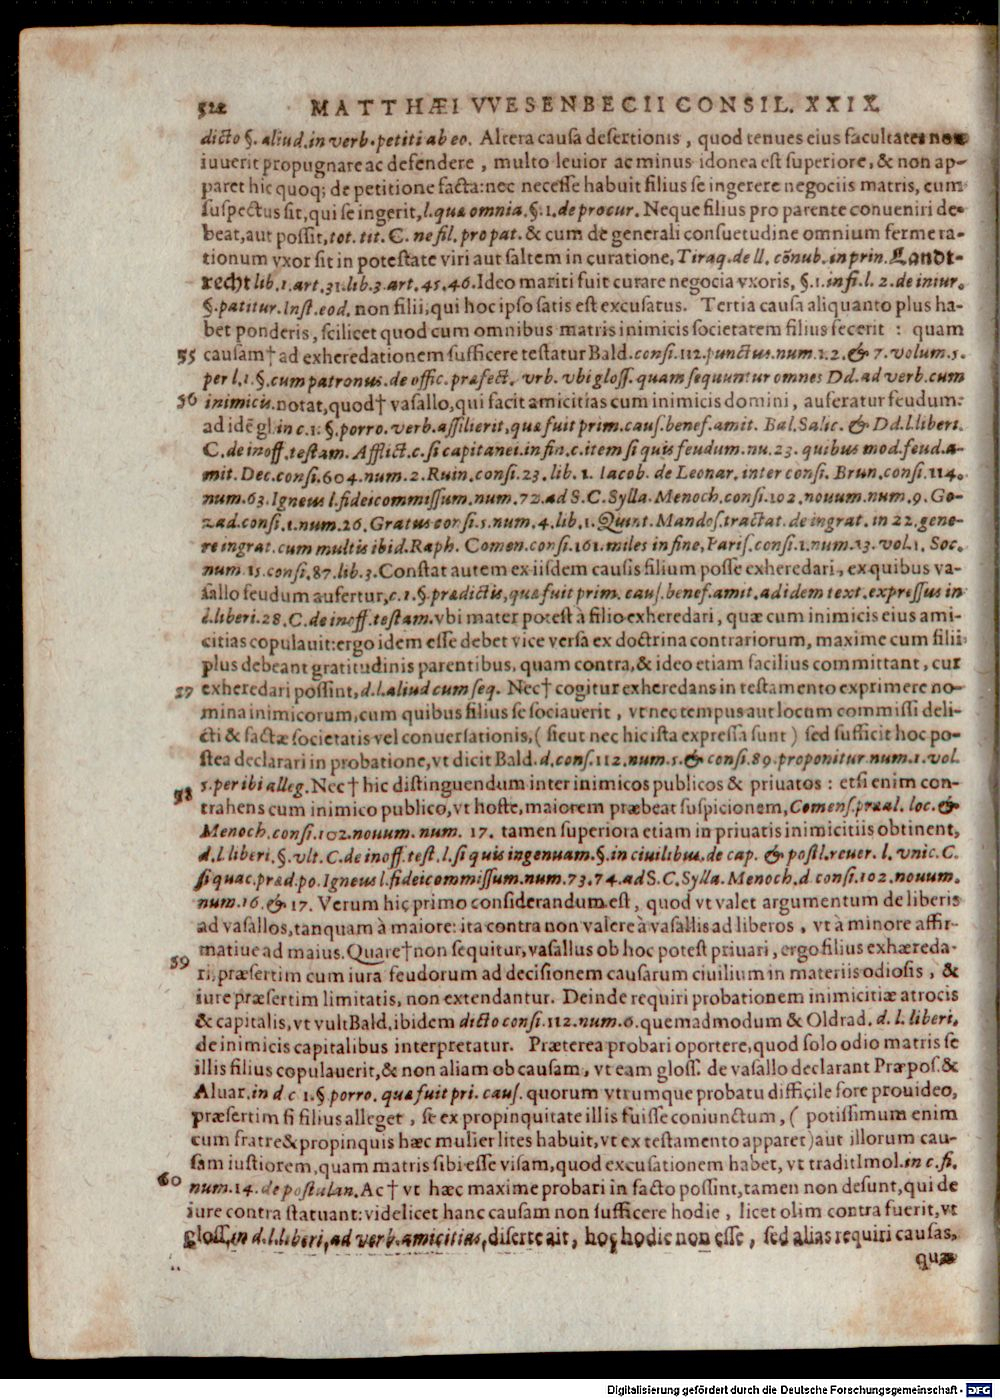 522 MATTHÆI VVESENBECII CONSIL. XXIX.
dicto §. aliud. in verb. petiti ab eo. Altera causa desertionis, quod tenues eius facultates non
iuuerit propugnare ac defendere, multo leuior ac minus idonea est superiore, & non ap-
paret hic quoq; de petitione facta: nec necesse habuit filius se ingerere negociis matris, cum
suspectus sit, qui se ingerit, l. quæ omnia. §. 1. de procur. Neque filius pro parente conueniri de-
beat, aut possit, tot. tit. C. ne fil. pro pat. & cum de generali consuetudine omnium ferme ra-
tionum vxor sit in potestate viri aut saltem in curatione, Tiraq. de ll. cõnub. in prin. Landt-
recht lib. 1. art. 31. lib. 3. art. 45. 46. Ideo mariti fuit curare negocia vxoris, §. 1. in fi. l. 2. de iniur.
§. patitur. Inst. eod. non filii, qui hoc ipso satis est excusatus. Tertia causa aliquanto plus ha-
bet ponderis, scilicet quod cum omnibus matris inimicis societatem filius fecerit : quam
55 causam† ad exheredationem sufficere testatur Bald. consi. 112. punctus. num. 1. 2. & 7. volum. 5.
per l. 1. §. cum patronus. de offic. præfect. vrb. vbi gloss. quam sequuntur omnes Dd. ad verb. cum
56 inimicis. notat, quod† vasallo, qui facit amicitias cum inimicis domini, auferatur feudum:
ad idẽ gl. in c. 1. §. porro. verb. assilierit, quæ fuit prim. caus. benef. amit. Bal. Salic. & Dd. l. liberi.
C. de inoff. testam. Afflict. c. si capitanei. in fin. c. item si quis feudum. nu. 23. quibus mod. feud. a-
mit. Dec. consi. 604. num. 2. Ruin. consi. 23. lib. 1. Iacob. de Leonar. inter consi. Brun. consi. 114.
num. 63. Igneus l. fideicommissum. num. 72. ad S. C. Sylla. Menoch. consi. 102. nouum. num. 9. Go-
zad. consi. 1. num. 26. Gratus consi. 5. num. 4. lib. 1. Quint. Mandos. tractat. de ingrat. in 22. gene-
re ingrat. cum multis ibid. Raph. Comen. consi. 161. miles in fine, Paris. consi. 1. num. 13. vol. 1. Soc.
num. 15. consi. 87. lib. 3. Constat autem ex iisdem causis filium posse exheredari, ex quibus va-
sallo feudum aufertur, c. 1. §. prædictis, quæ fuit prim. caus. benef. amit. ad idem text. expressus in
l. liberi. 28. C. de inoff. testam. vbi mater potest à filio exheredari, quæ cum inimicis eius ami-
citias copulauit: ergo idem esse debet vice versa ex doctrina contrariorum, maxime cum filii
plus debeant gratitudinis parentibus, quam contra, & ideo etiam facilius committant, cur
57 exheredari possint, d. l. aliud cum seq. Nec† cogitur exheredans in testamento exprimere no-
mina inimicorum, cum quibus filius se sociauerit, vt nec tempus aut locum commissi deli-
cti & factæ societatis vel conuersationis, (sicut nec hic ista expressa sunt) sed sufficit hoc po-
stea declarari in probatione, vt dicit Bald. d. cons. 112. num. 5. & consi. 89. proponitur num. 1. vol.
58 5. per ibi alleg. Nec† hic distinguendum inter inimicos publicos & priuatos : etsi enim con-
trahens cum inimico publico, vt hoste, maiorem præbeat suspicionem, Comens. præal. loc. &
Menoch. consi. 102. nouum. num. 17. tamen superiora etiam in priuatis inimicitiis obtinent,
d. l. liberi. §. vlt. C. de inoff. test. l. si quis ingenuam. §. in ciuilibus. de cap. & postl. reuer. l. vnic. C.
si quac. præd. po. Igneus l. fideicommissum. num. 73. 74. ad S. C. Sylla. Menoch. d consi. 102. nouum.
num. 16. & 17. Verum hic primo considerandum est, quod vt valet argumentum de liberis
ad vasallos, tanquam à maiore: ita contra non valere à vasallis ad liberos, vt à minore affir-
59 matiue ad maius. Quare† non sequitur, vasallus ob hoc potest priuari, ergo filius exhæreda-
ri, præsertim cum iura feudorum ad decisionem causarum ciuilium in materiis odiosis, &
iure præsertim limitatis, non extendantur. Deinde requiri probationem inimicitiæ atrocis
& capitalis, vt vult Bald. ibidem dicto consi. 112. num. 6. quemadmodum & Oldrad. d. l. liberi.
de inimicis capitalibus interpretatur. Præterea probari oportere, quod solo odio matris se
illis filius copulauerit, & non aliam ob causam, vt eam gloss. de vasallo declarant Præpos. &
Aluar. in d c 1. § porro. quæ fuit pri. caus. quorum vtrumque probatu difficile fore prouideo,
præsertim si filius alleget, se ex propinquitate illis fuisse coniunctum, (potissimum enim
cum fratre & propinquis hæc mulier lites habuit, vt ex testamento apparet) aut illorum cau-
sam iustiorem, quam matris sibi esse visam, quod excusationem habet, vt tradit Imol. in c. fi.
60 num. 14. de postulan. Ac† vt hæc maxime probari in facto possint, tamen non desunt, qui de
iure contra statuant: videlicet hanc causam non sufficere hodie, licet olim contra fuerit, vt
gloss. in d. l. liberi, ad verb. amicitias, diserte ait, hoc hodie non esse, sed alias requiri causas,
quæ
Digitalisierung gefördert durch die Deutsche Forschungsgemeinschaft - DFG